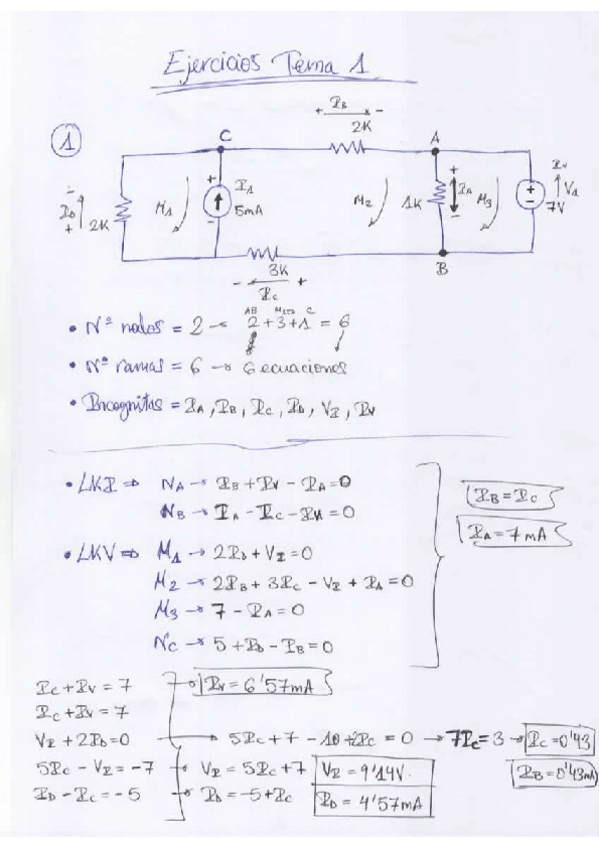 Ejercicios Tema 1
1
+ I_B -
2K
C
A
- I_D + 2K
M1
+ I1 5mA -
M2
1K
+ I_A -
M3
I_V
V1
7V
B
3K
- I_C +
AB M123 C
• Nº nodos = 2 → 2+3+1 = 6
• Nº ramas = 6 → 6 ecuaciones
• Incognitas = I_A, I_B, I_C, I_D, V_I, I_V
• LKI ⇒ N_A → I_B + I_V - I_A = 0
N_B → I_A - I_C - I_V = 0
I_B = I_C
I_A = 7 mA
• LKV ⇒ M1 → 2I_D + V_I = 0
M2 → 2I_B + 3I_C - V_I + I_A = 0
M3 → 7 - I_A = 0
N_C → 5 + I_D - I_B = 0
I_C + I_V = 7 → I_V = 6'57mA
I_C + I_V = 7
V_I + 2I_D = 0 → 5I_C + 7 - 10 + 2I_C = 0 → 7I_C = 3 → I_C = 0'43
5I_C - V_I = -7 → V_I = 5I_C + 7 V_I = 9'14V. I_B = 0'43mA
I_D - I_C = -5 → I_D = -5 + I_C I_D = 4'57mA